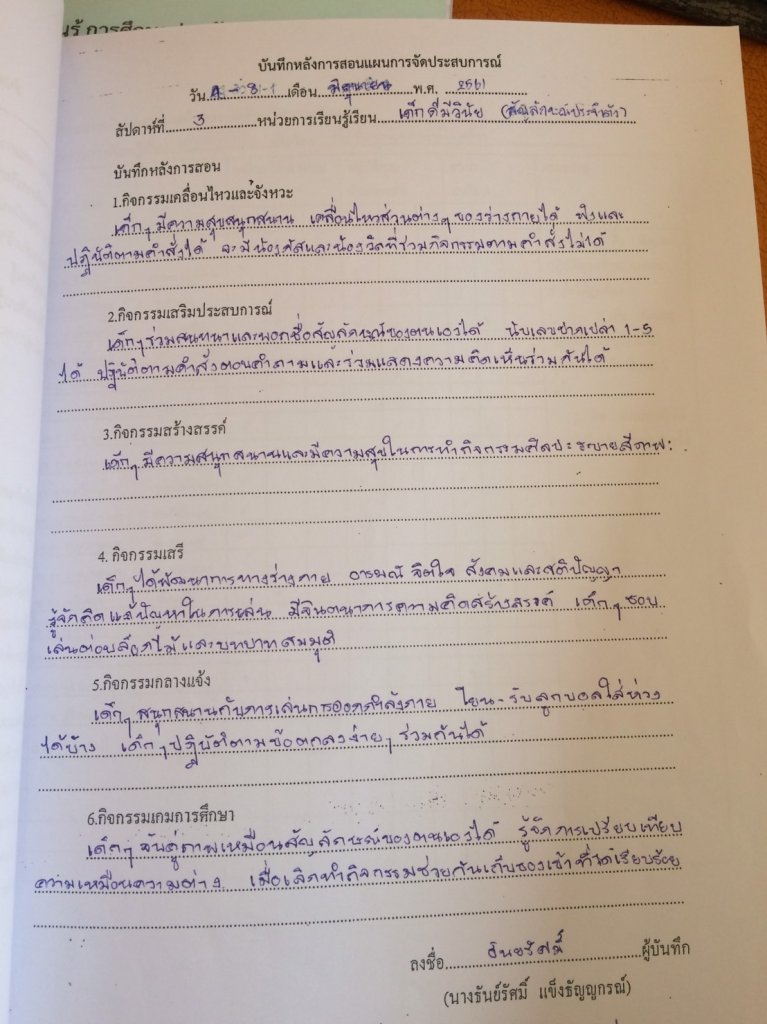 บันทึกหลังการสอนแผนการจัดประสบการณ์
วัน 4 - 8 เดือน มิถุนายน พ.ศ. 2561
สัปดาห์ที่ 3 หน่วยการเรียนรู้เรียน เด็กดีมีวินัย (สัญลักษณ์ประจำตัว)
บันทึกหลังการสอน
1.กิจกรรมเคลื่อนไหวและจังหวะ
เด็กๆ มีความสุขสนุกสนาน เคลื่อนไหวส่วนต่างๆ ของร่างกายได้ ฟังและ
ปฏิบัติตามคำสั่งได้ จะมีน้องคัสและน้องวิลที่ร่วมกิจกรรมตามคำสั่งไม่ได้
2.กิจกรรมเสริมประสบการณ์
เด็กๆ ร่วมสนทนาและบอกชื่อสัญลักษณ์ของตนเองได้ นับเลขปากเปล่า 1-5
ได้ ปฏิบัติตามคำสั่งตอบคำถามและร่วมแสดงความคิดเห็นร่วมกันได้
3.กิจกรรมสร้างสรรค์
เด็กๆ มีความสนุกสนานและมีความสุขในการทำกิจกรรมศิลปะ ระบายสีภาพ
4. กิจกรรมเสรี
เด็กๆ ได้พัฒนาการทางร่างกาย อารมณ์ จิตใจ สังคมและสติปัญญา
รู้จักคิดแก้ปัญหาในการเล่น มีจินตนาการความคิดสร้างสรรค์ เด็กๆ ชอบ
เล่นต่อบล็อกไม้และบทบาทสมมุติ
5.กิจกรรมกลางแจ้ง
เด็กๆ สนุกสนานกับการเล่นการออกกำลังกาย โยน-รับลูกบอลใส่ห่วง
ได้บ้าง เด็กๆ ปฏิบัติตามข้อตกลงง่ายๆ ร่วมกันได้
6.กิจกรรมเกมการศึกษา
เด็กๆ จับคู่ภาพเหมือนสัญลักษณ์ของตนเองได้ รู้จักการเปรียบเทียบ
ความเหมือนความต่าง เมื่อเลิกทำกิจกรรมช่วยกันเก็บของเข้าที่ได้เรียบร้อย
ลงชื่อ ธันยรัศมิ์ ผู้บันทึก
(นางธันย์รัศมิ์ แข็งธัญญกรณ์)